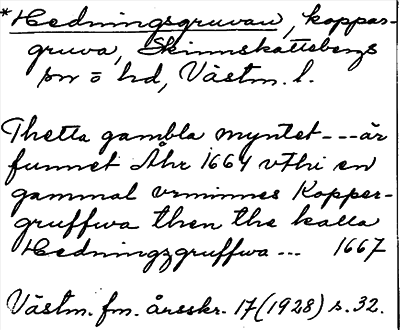 *Hedningsgruvan, koppar-
gruva, Skinnskattebergs
sn o hd, Västm. l.
Thetta gambla myntet---är
funnet Åhr 1664 vthi en
gammal vrminnes Kopper-
gruffwa then the kalla
Hedningzgruffwa... 1667
Västm. fm. årsskr. 17 (1928) s. 32.